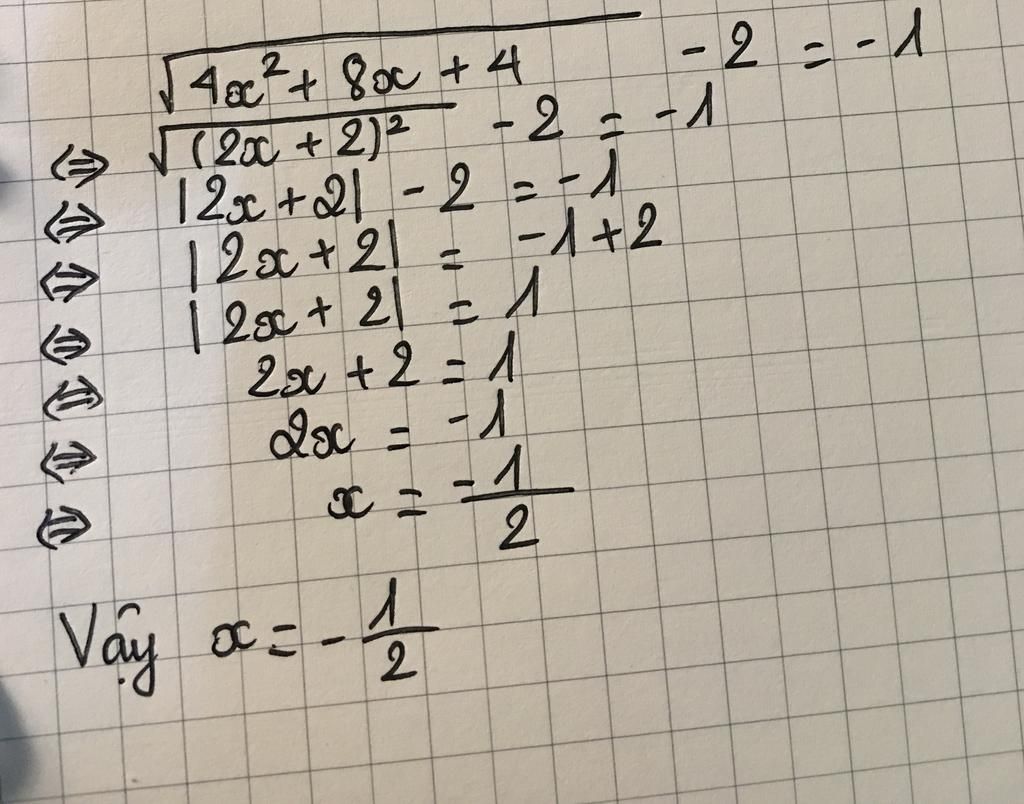 √(4x² + 8x + 4) - 2 = -1
⇔ √((2x + 2)²) - 2 = -1
⇔ |2x + 2| - 2 = -1
⇔ |2x + 2| = -1 + 2
⇔ |2x + 2| = 1
⇔ 2x + 2 = 1
⇔ 2x = -1
⇔ x = -1/2
Vậy x = -1/2